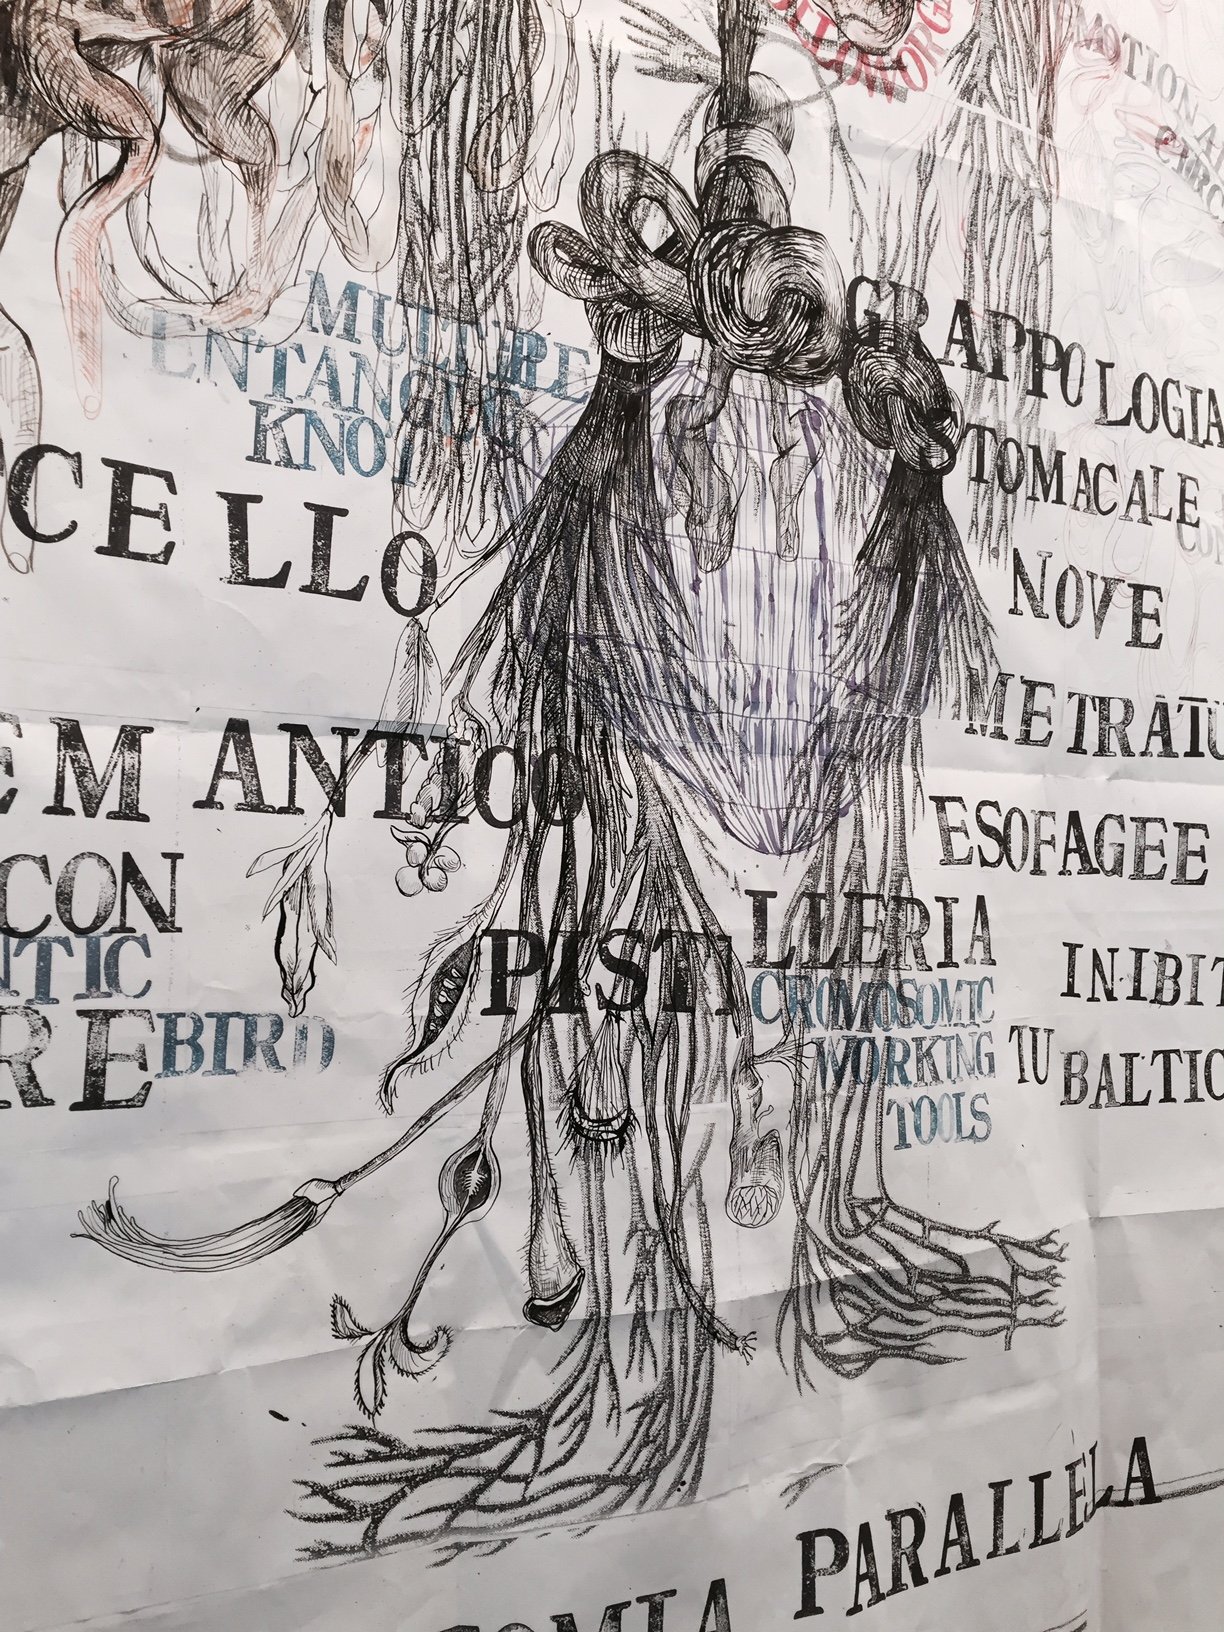 MOTION A
CIRC
MULTIPLE
ENTANGLED
KNOT
GRAPPOLOGIA
TOMACALE
CON
CELLO
NOVE
METRATU
EM ANTICO
ESOFAGEE
CON
NTIC
RE BIRD
PISTILLERIA
CROMOSOMIC
WORKING
TOOLS
INIBIT
TU BALTIC
OMIA PARALLELA